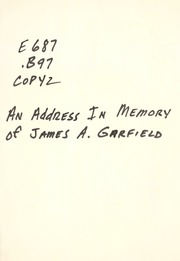 E687
.B97
COPY2
AN ADDRESS IN MEMORY
OF JAMES A. GARFIELD